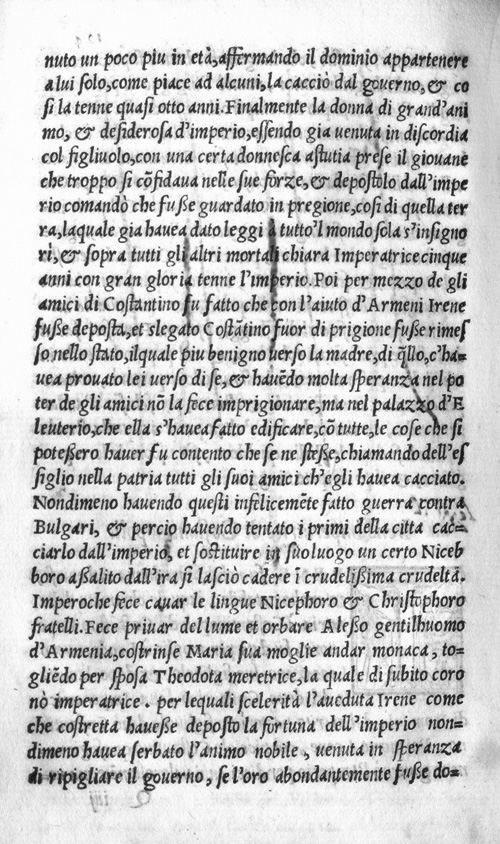 nuto un poco piu in età, affermando il dominio appartenere
a lui solo, come piace ad alcuni, la cacciò dal governo, & co
si la tenne quasi otto anni. Finalmente la donna di grand'ani
mo, & desiderosa d'imperio, essendo gia venuta in discordia
col figliuolo, con una certa donnesca astutia prese il giovane
che troppo si cõfidava nelle sue forze, & depostolo dall'impe
rio comandò che fusse guardato in pregione, cosi di quella ter
ra, laquale gia havea dato leggi à tutto'l mondo sola s'insigno
rì, & sopra tutti gli altri mortali chiara Imperatrice cinque
anni con gran gloria tenne l'imperio. Poi per mezzo de gli
amici di Costantino fu fatto che con l'aiuto d'Armeni Irene
fusse deposta, et slegato Costãtino fuor di prigione fusse rimes
so nello stato, ilquale piu benigno verso la madre, di q̃llo, c'ha=
vea provato lei verso di se, & havẽdo molta speranza nel po
ter de gli amici nõ la fece imprigionare, ma nel palazzo d'E
leuterio, che ella s'havea fatto edificare, cõ tutte, le cose che si
potessero haver fu contento che se ne stesse, chiamando dell'es
siglio nella patria tutti gli suoi amici ch'egli havea cacciato.
Nondimeno havendo questi infelicemẽte fatto guerra contra
Bulgari, & percio havendo tentato i primi della citta cac=
ciarlo dall'imperio, et sostituire in suo luogo un certo Niceb
boro assalito dall'ira si lasciò cadere ĩ crudelissima crudeltà.
Imperoche fece cavar le lingue Nicephoro & Christophoro
fratelli. Fece privar del lume et orbare Alesso gentilhuomo
d'Armenia, costrinse Maria sua moglie andar monaca, to=
gliẽdo per sposa Theodota meretrice, la quale di subito coro
nò imperatrice. per lequali scelerità l'aveduta Irene come
che costretta havesse deposto la fortuna dell'imperio non=
dimeno havea serbato l'animo nobile, venuta in speranza
di ripigliare il governo, se l'oro abondantemente fusse do=